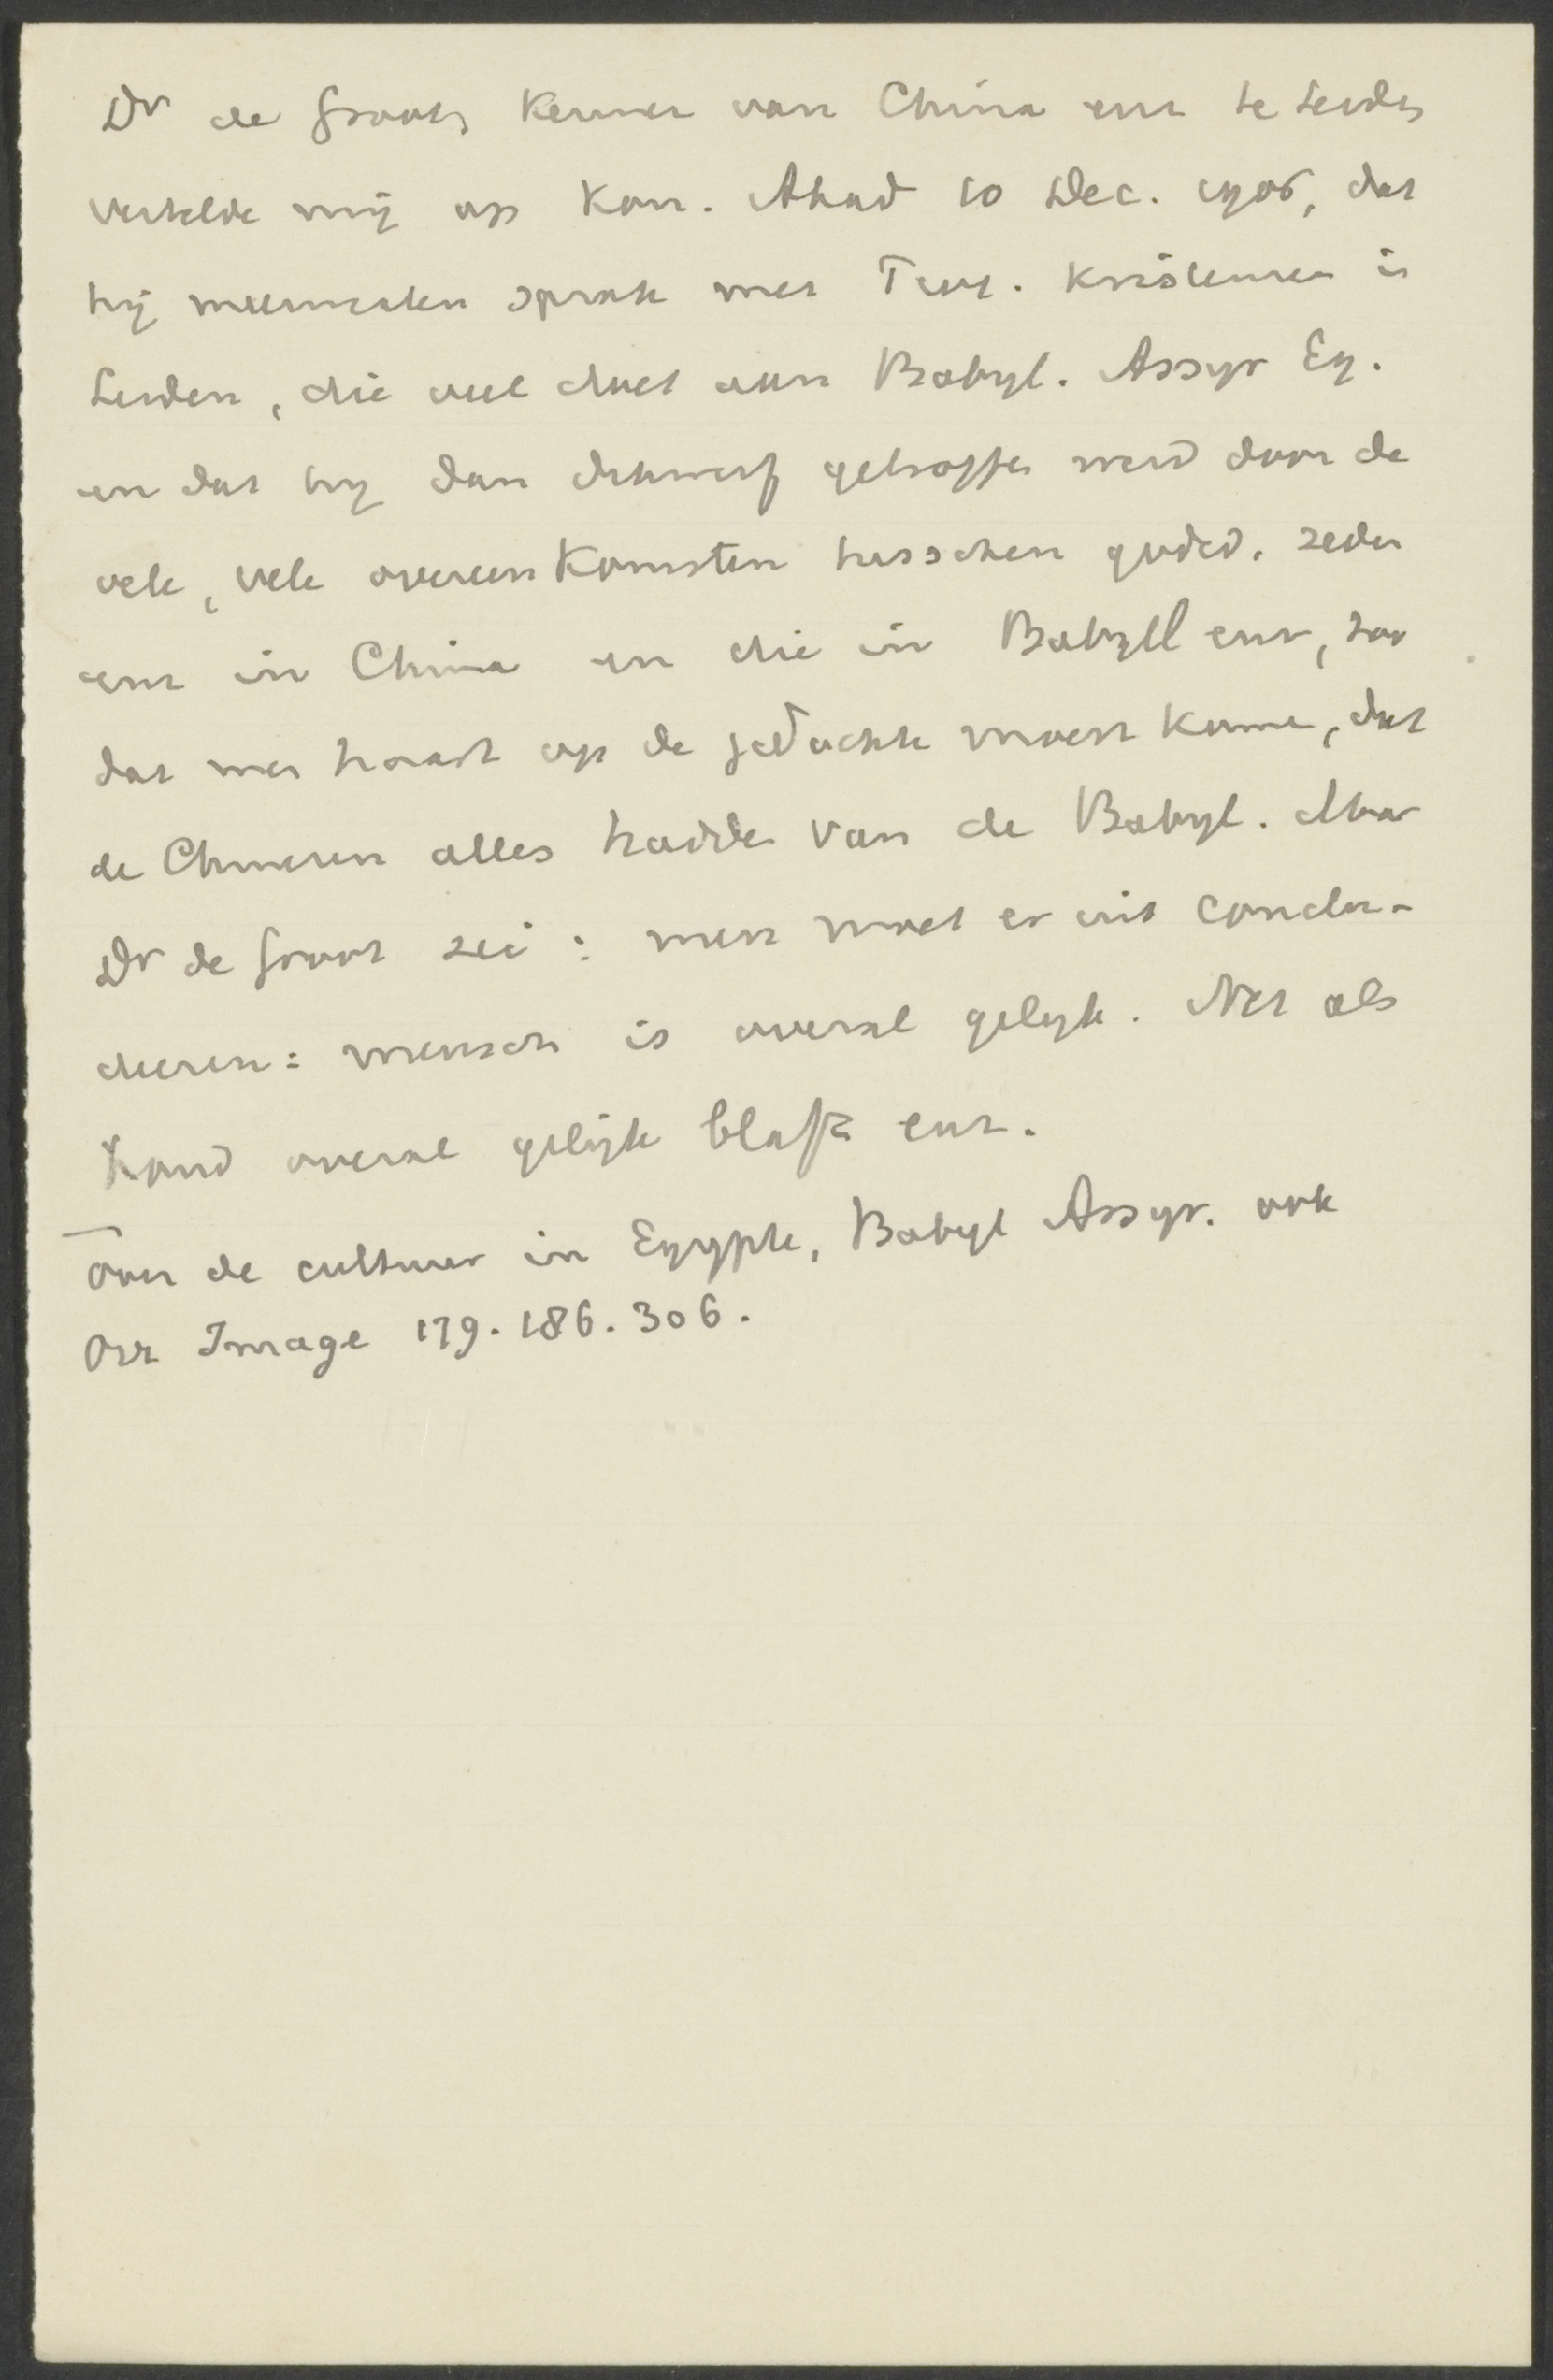 Dr de Groot, Kenner van China enz te Leiden
vertelde mij op Kon. Akad 10 Dec. 1906, dat
hij meermalen sprak met Prof. Kristensen in
Leiden, die veel doet aan Babyl. Assyr Eg.
en dat hij dan dikwerf getroffen werd door de
vele, vele overeenkomsten tusschen godsd. zeden
enz in China en die in Babyl enz, zoo
dat men haast op de gedachte moest komen, dat
de Chineezen alles hadden van de Babyl. Maar
Dr de Groot zei: men moet er uit conclu-
deeren: mensch is overal gelijk. Net als
hond overal gelijk blaft enz.
Over de cultuur in Egypte, Babyl Assyr. ook
Orr Image 179. 186. 306.